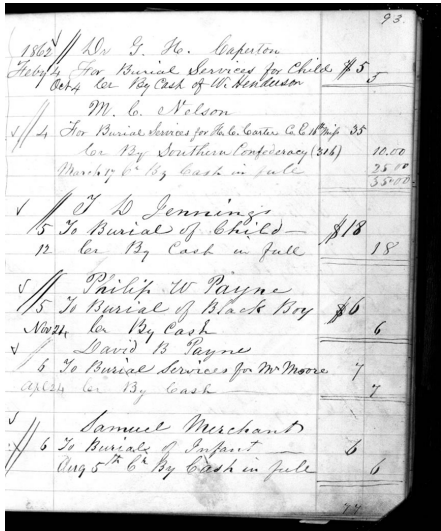 93.
1862 // Dr G. H. Caperton
Feby 4 For Burial Services for Child $5
Oct 4 Cr By Cash of W. Henderson 5
// M. C. Nelson
4 For Burial Services for H. C. Carter Co. C 11th Miss 35
Cr By Southern Confederacy (316) 10.00
March 17 Cr By Cash in full 25.00
35.00
// T D Jennings
5 To Burial of Child — $18
12 Cr By Cash in full 18
// Philip W Payne
5 To Burial of Black Boy $6
Nov 24 Cr By Cash 6
// David B Payne
6 To Burial Services for Mr Moore 7
Apl 24 Cr By Cash 7
Samuel Merchant
// 6 To Burials of Infant — 6
Aug 5th Cr By Cash in full 6